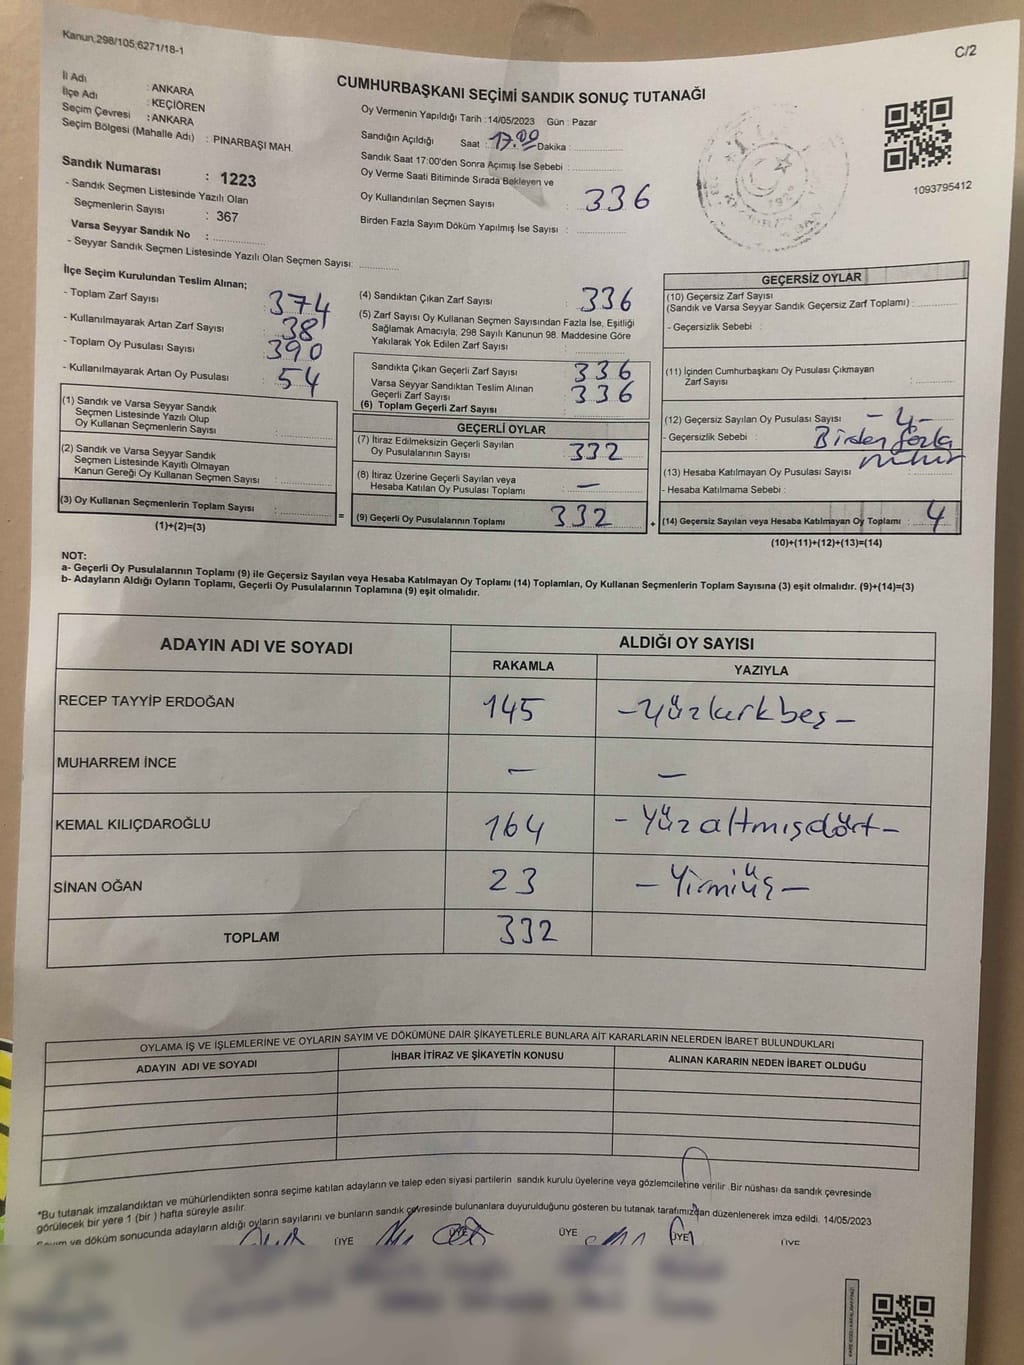 Kanun,298/105,6271/18-1
C/2
CUMHURBAŞKANI SEÇİMİ SANDIK SONUÇ TUTANAĞI
İl Adı : ANKARA
İlçe Adı : KEÇİÖREN
Seçim Çevresi : ANKARA
Seçim Bölgesi (Mahalle Adı) : PINARBAŞI MAH.
Sandık Numarası : 1223
- Sandık Seçmen Listesinde Yazılı Olan
Seçmenlerin Sayısı : 367
Varsa Seyyar Sandık No :
- Seyyar Sandık Seçmen Listesinde Yazılı Olan Seçmen Sayısı:
Oy Vermenin Yapıldığı Tarih : 14/05/2023 Gün : Pazar
Sandığın Açıldığı Saat : 17.00 Dakika :
Sandık Saat 17:00'den Sonra Açımış İse Sebebi :
Oy Verme Saati Bitiminde Sırada Bekleyen ve
Oy Kullandırılan Seçmen Sayısı : 336
Birden Fazla Sayım Döküm Yapılmış İse Sayısı :
1093795412
İlçe Seçim Kurulundan Teslim Alınan;
- Toplam Zarf Sayısı : 374
- Kullanılmayarak Artan Zarf Sayısı : 38
- Toplam Oy Pusulası Sayısı : 390
- Kullanılmayarak Artan Oy Pusulası : 54
(1) Sandık ve Varsa Seyyar Sandık
Seçmen Listesinde Yazılı Olup
Oy Kullanan Seçmenlerin Sayısı :
(2) Sandık ve Varsa Seyyar Sandık
Seçmen Listesinde Kayıtlı Olmayan
Kanun Gereği Oy Kullanan Seçmen Sayısı :
(3) Oy Kullanan Seçmenlerin Toplam Sayısı :
(1)+(2)=(3)
(4) Sandıktan Çıkan Zarf Sayısı : 336
(5) Zarf Sayısı Oy Kullanan Seçmen Sayısından Fazla İse, Eşitliği
Sağlamak Amacıyla; 298 Sayılı Kanunun 98. Maddesine Göre
Yakılarak Yok Edilen Zarf Sayısı :
Sandıkta Çıkan Geçerli Zarf Sayısı : 336
Varsa Seyyar Sandıktan Teslim Alınan
Geçerli Zarf Sayısı : 336
(6) Toplam Geçerli Zarf Sayısı :
GEÇERLİ OYLAR
(7) İtiraz Edilmeksizin Geçerli Sayılan
Oy Pusulalarının Sayısı : 332
(8) İtiraz Üzerine Geçerli Sayılan veya
Hesaba Katılan Oy Pusulası Toplamı : —
= (9) Geçerli Oy Pusulalarının Toplamı : 332 +
GEÇERSİZ OYLAR
(10) Geçersiz Zarf Sayısı
(Sandık ve Varsa Seyyar Sandık Geçersiz Zarf Toplamı) :
- Geçersizlik Sebebi :
(11) İçinden Cumhurbaşkanı Oy Pusulası Çıkmayan
Zarf Sayısı :
(12) Geçersiz Sayılan Oy Pusulası Sayısı : -4-
- Geçersizlik Sebebi : Birden fazla
mühür
(13) Hesaba Katılmayan Oy Pusulası Sayısı :
- Hesaba Katılmama Sebebi :
(14) Geçersiz Sayılan veya Hesaba Katılmayan Oy Toplamı : 4
(10)+(11)+(12)+(13)=(14)
NOT:
a- Geçerli Oy Pusulalarının Toplamı (9) ile Geçersiz Sayılan veya Hesaba Katılmayan Oy Toplamı (14) Toplamları, Oy Kullanan Seçmenlerin Toplam Sayısına (3) eşit olmalıdır. (9)+(14)=(3)
b- Adayların Aldığı Oyların Toplamı, Geçerli Oy Pusulalarının Toplamına (9) eşit olmalıdır.
ADAYIN ADI VE SOYADI
ALDIĞI OY SAYISI
RAKAMLA YAZIYLA
RECEP TAYYİP ERDOĞAN 145 -Yüzkırkbeş-
MUHARREM İNCE — —
KEMAL KILIÇDAROĞLU 164 -Yüzaltmışdört-
SİNAN OĞAN 23 -Yirmiüç-
TOPLAM 332
OYLAMA İŞ VE İŞLEMLERİNE VE OYLARIN SAYIM VE DÖKÜMÜNE DAİR ŞİKAYETLERLE BUNLARA AİT KARARLARIN NELERDEN İBARET BULUNDUKLARI
ADAYIN ADI VE SOYADI İHBAR İTİRAZ VE ŞİKAYETİN KONUSU ALINAN KARARIN NEDEN İBARET OLDUĞU
*Bu tutanak imzalandıktan ve mühürlendikten sonra seçime katılan adayların ve talep eden siyasi partilerin sandık kurulu üyelerine veya gözlemcilerine verilir. Bir nüshası da sandık çevresinde
görülecek bir yere 1 (bir ) hafta süreyle asılır.
Sayım ve döküm sonucunda adayların aldığı oyların sayılarını ve bunların sandık çevresinde bulunanlara duyurulduğunu gösteren bu tutanak tarafımızdan düzenlenerek imza edildi. 14/05/2023
ÜYE ÜYE ÜYE ÜYE ÜYE